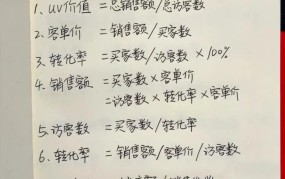 1. UV价值 = 总销售额/总访客数
2. 客单价 = 销售额/买家数
3. 转化率 = 买家数/访客数 × 100%
4. 销售额 = 买家数 × 客单价
= 访客数 × 转化率 × 客单价
5. 访客数 = 买家数/转化率
6. 转化率 = 销售额/客单价/访客数